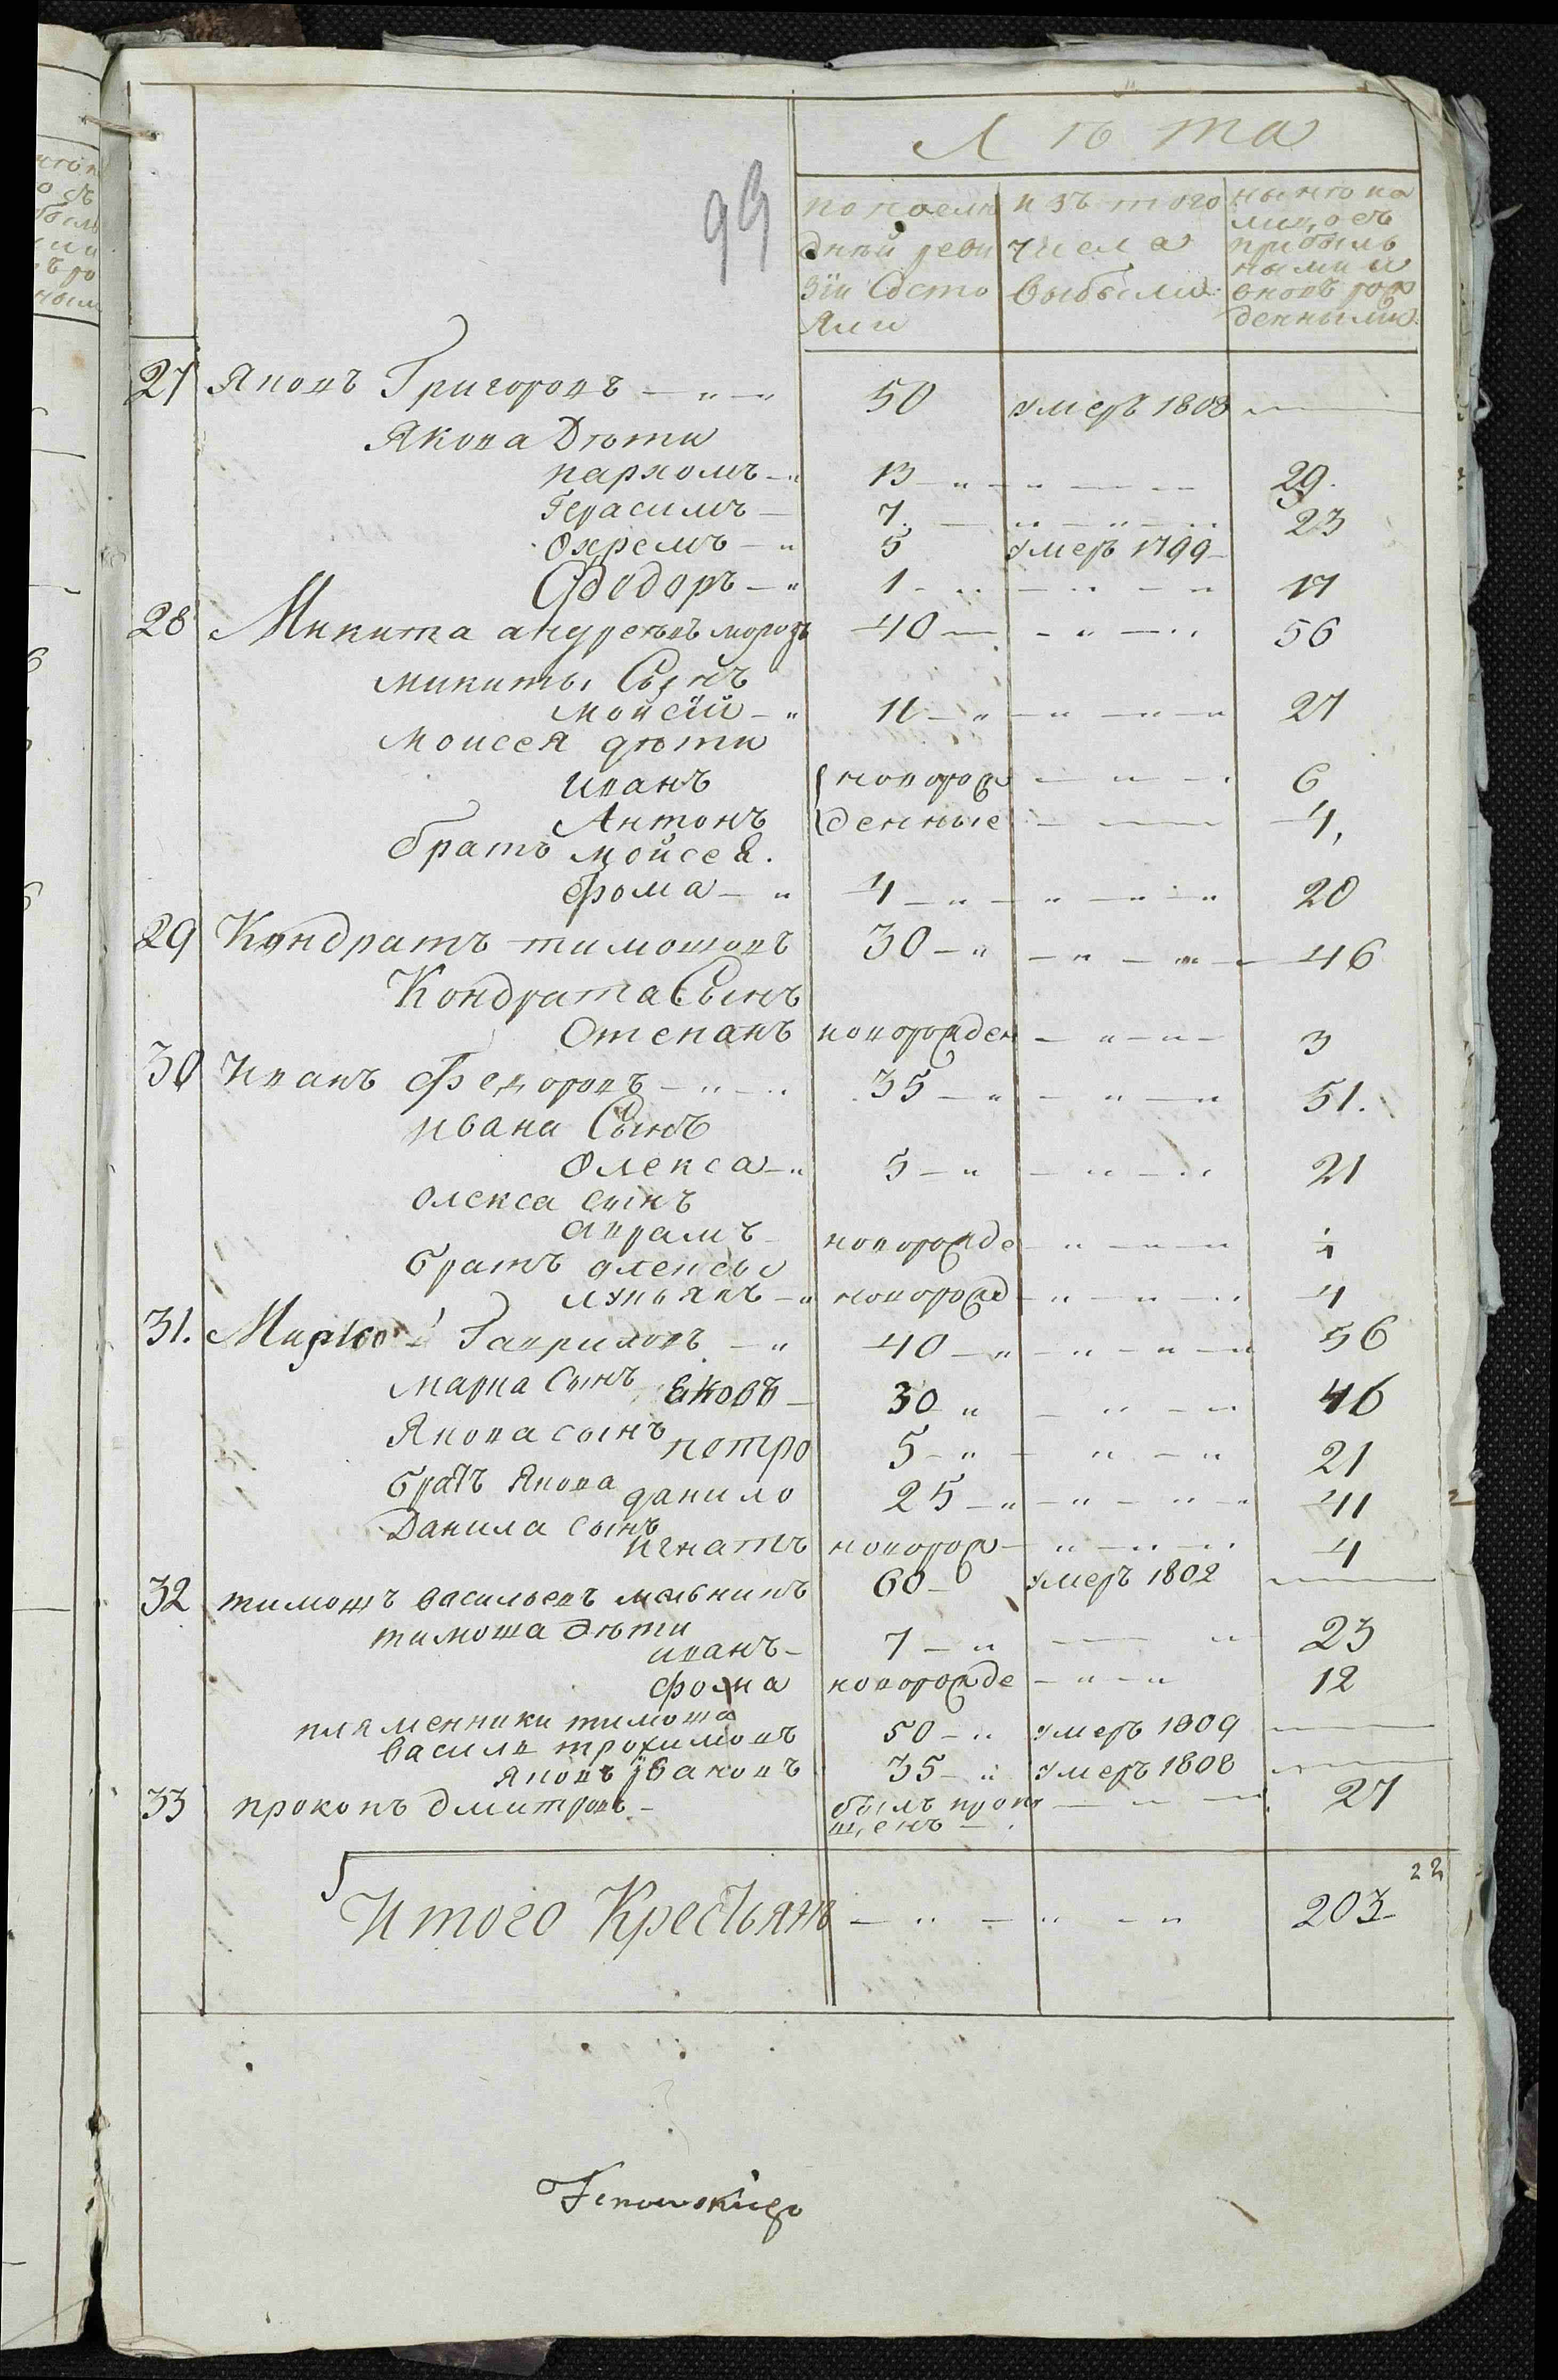 Лѣта
99
по послѣдней ревизіи Состояли | изъ того числа выбыли | нынѣ на лицо съ прибылыми и вновь рожденными
27 Яковъ Григоровъ — 50 умеръ 1808 —
Якова Дѣти
пархомъ — 13 — 29.
Герасимъ — 7. — 23
Охремъ — 5 умеръ 1799 —
Ѳодоръ — 1 — 17
28 Микита андреевъ морозъ 40 — 56
микиты Сынъ
мойсій — 11 — 27
Моисея дѣти
иванъ новорож — 6
Антонъ денные — 4,
братъ мойсея.
фома — 4 — 20
29 Кондратъ тимошовъ 30 — 46
Кондрата Сынъ
Степанъ новорожден — 3
30 Иванъ Федоровъ — 35 — 51.
ивана Сынъ
Олекса — 5 — 21
Олекса сынъ
аврамъ новорожде — 1
братъ олексы
лукьянъ — новорожд — 4
31. Марко Гавриловъ — 40 — 56
Марка Сынъ Яковъ — 30 — 46
Якова сынъ петро 5 — 21
братъ Якова данило 25 — 41
Данила сынъ игнатъ новорож — 4
32 тимошъ васильевъ мельникъ 60 — умеръ 1802 —
тимоша дѣти
иванъ — 7 — 23
фома новорожде — 12
пляменники тимоша
василь трохимовъ 50 — умеръ 1809 —
Яковъ ивановъ 35 — умеръ 1808 —
33 прокопъ дмитровъ — былъ пропущенъ — 27
22
Итого Крестьянъ — 203